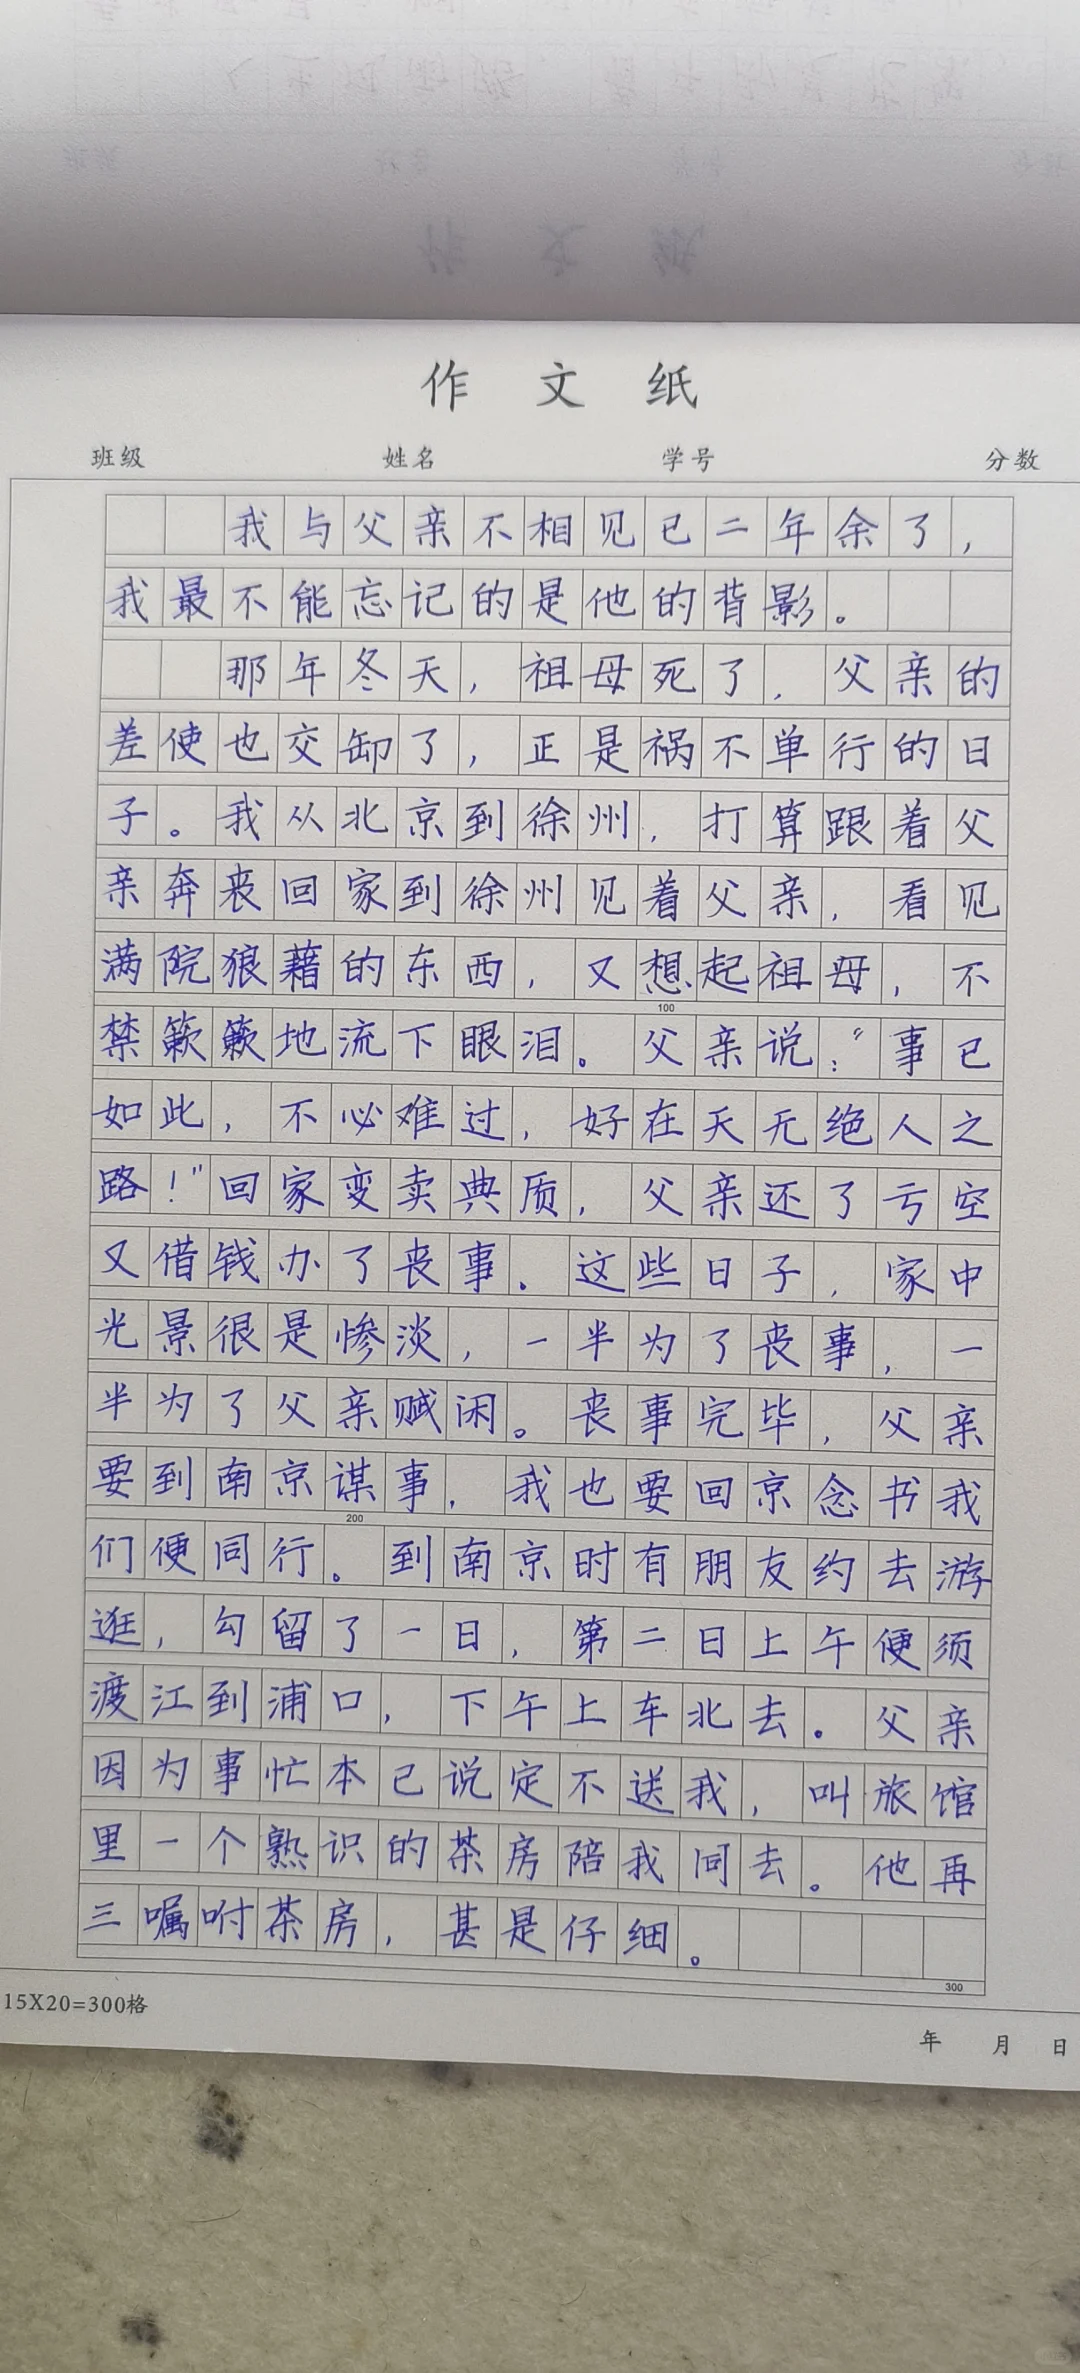 作文纸
班级 姓名 学号 分数
我与父亲不相见已二年余了，
我最不能忘记的是他的背影。
那年冬天，祖母死了，父亲的
差使也交卸了，正是祸不单行的日
子。我从北京到徐州，打算跟着父
亲奔丧回家到徐州见着父亲，看见
满院狼藉的东西，又想起祖母，不
100
禁簌簌地流下眼泪。父亲说：“事已
如此，不必难过，好在天无绝人之
路！”回家变卖典质，父亲还了亏空
又借钱办了丧事．这些日子，家中
光景很是惨淡，一半为了丧事，一
半为了父亲赋闲。丧事完毕，父亲
要到南京谋事，我也要回京念书我
200
们便同行。到南京时有朋友约去游
逛，勾留了一日，第二日上午便须
渡江到浦口，下午上车北去。父亲
因为事忙本已说定不送我，叫旅馆
里一个熟识的茶房陪我同去。他再
三嘱咐茶房，甚是仔细。
300
15X20=300格
年 月 日